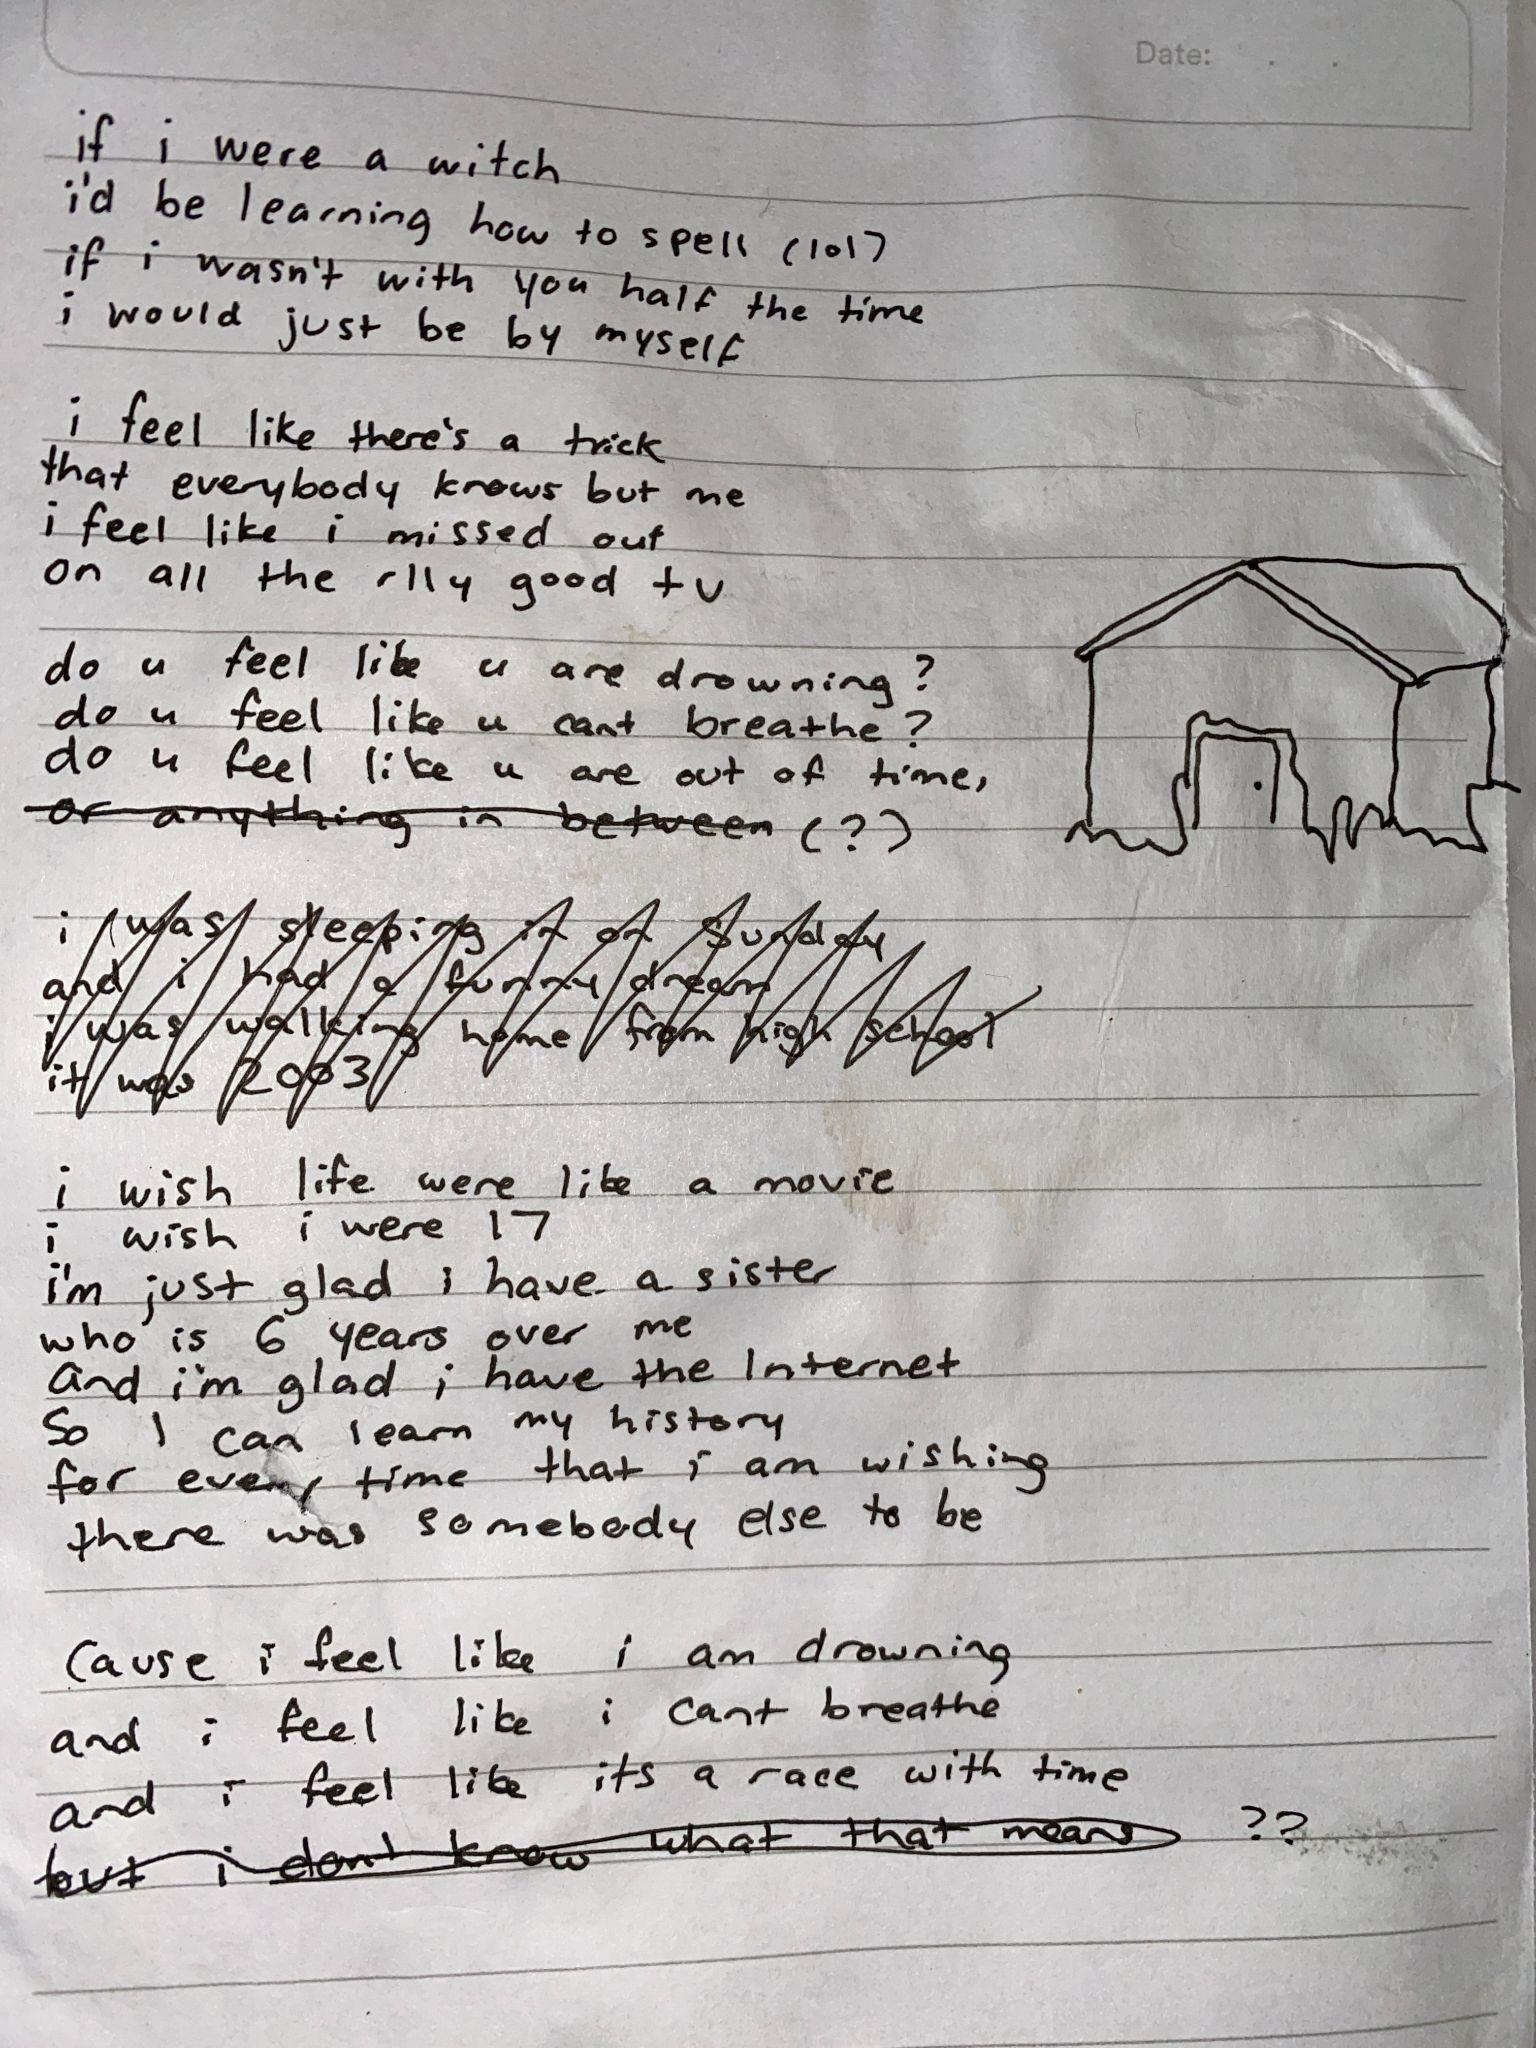 Date: . .
if i were a witch
i'd be learning how to spell (lol)
if i wasn't with you half the time
i would just be by myself
i feel like there's a trick
that everybody knows but me
i feel like i missed out
on all the rlly good tv
do u feel like u are drowning?
do u feel like u cant breathe?
do u feel like u are out of time,
or anything in between (?)
i was sleeping in on Sunday
and i had a funny dream
i was walking home from high school
it was 2003
i wish life were like a movie
i wish i were 17
i'm just glad i have a sister
who is 6 years over me
and i'm glad i have the Internet
So I can learn my history
for every time that i am wishing
there was somebody else to be
Cause i feel like i am drowning
and i feel like i cant breathe
and i feel like its a race with time
but i don't know what that means ??